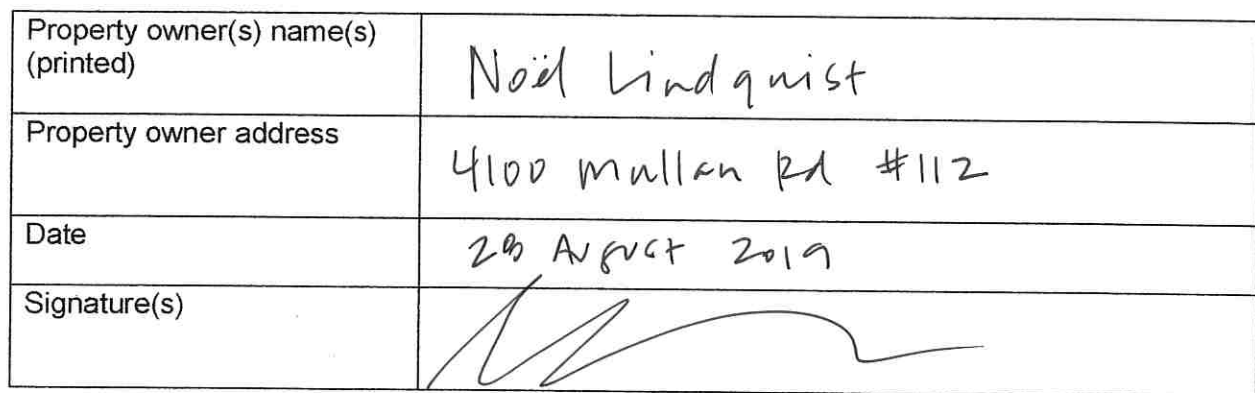 Property owner(s) name(s)
(printed)
Noël Lindquist
Property owner address
4100 Mullan Rd #112
Date
28 August 2019
Signature(s)